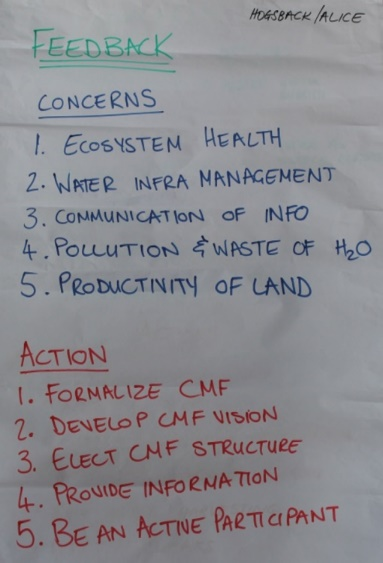 HOGSBACK/ALICE
FEEDBACK
CONCERNS
1. ECOSYSTEM HEALTH
2. WATER INFRA MANAGEMENT
3. COMMUNICATION OF INFO
4. POLLUTION & WASTE OF H₂O
5. PRODUCTIVITY OF LAND
ACTION
1. FORMALIZE CMF
2. DEVELOP CMF VISION
3. ELECT CMF STRUCTURE
4. PROVIDE INFORMATION
5. BE AN ACTIVE PARTICIPANT